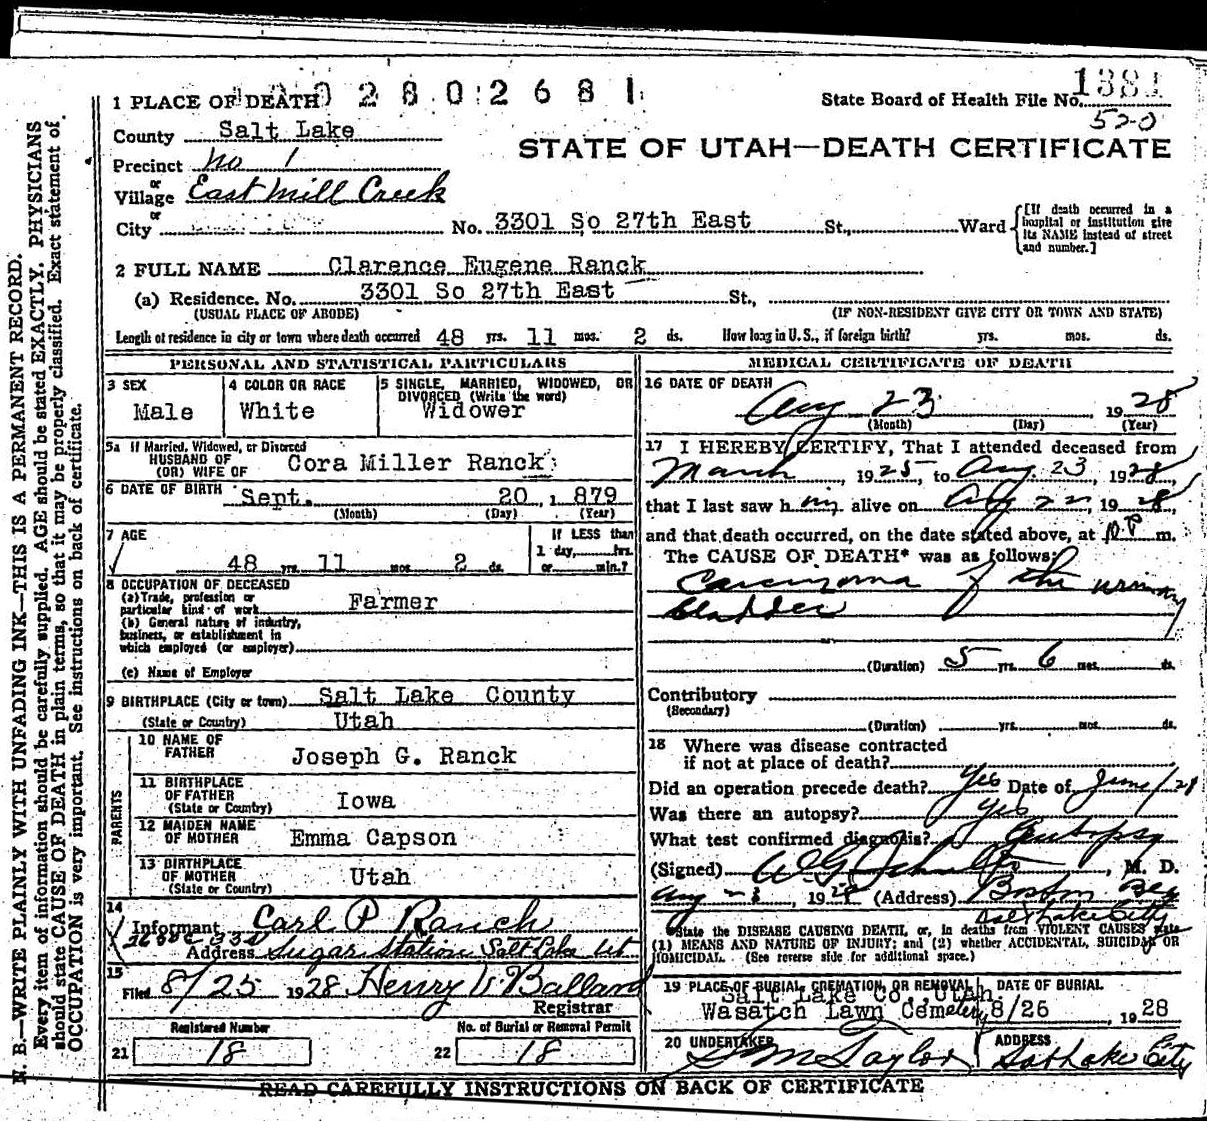 0 2 8 0 2 6 8 1
1381
1 PLACE OF DEATH
State Board of Health File No.
520
County Salt Lake
STATE OF UTAH—DEATH CERTIFICATE
Precinct No 1
or
Village East Mill Creek
or
City No. 3301 So 27th East St., Ward
[If death occurred in a
hospital or institution give
its NAME instead of street
and number.]
2 FULL NAME Clarence Eugene Ranck
(a) Residence. No. 3301 So 27th East St.,
(USUAL PLACE OF ABODE) (IF NON-RESIDENT GIVE CITY OR TOWN AND STATE)
Length of residence in city or town where death occurred 48 yrs. 11 mos. 2 ds. How long in U.S., if foreign birth? yrs. mos. ds.
PERSONAL AND STATISTICAL PARTICULARS
3 SEX
Male
4 COLOR OR RACE
White
5 SINGLE, MARRIED, WIDOWED, OR
DIVORCED (Write the word)
Widower
5a If Married, Widowed, or Divorced
HUSBAND OF
(OR) WIFE OF Cora Miller Ranck
6 DATE OF BIRTH Sept. 20 1879
(Month) (Day) (Year)
7 AGE
48 yrs. 11 mos 2 ds.
If LESS than
1 day, hrs.
or min.?
8 OCCUPATION OF DECEASED
(a) Trade, profession or
particular kind of work Farmer
(b) General nature of industry,
business, or establishment in
which employed (or employer)
(c) Name of Employer
9 BIRTHPLACE (City or town) Salt Lake County
(State or Country) Utah
PARENTS
10 NAME OF
FATHER Joseph G. Ranck
11 BIRTHPLACE
OF FATHER
(State or Country) Iowa
12 MAIDEN NAME
OF MOTHER Emma Capson
13 BIRTHPLACE
OF MOTHER
(State or Country) Utah
14
Informant Carl P Ranck
Address Sugar Station Salt Lake Ut
15
Filed 8/25 1928 Henry V. Ballard
Registrar
Registered Number
21 18
No. of Burial or Removal Permit
22 18
MEDICAL CERTIFICATE OF DEATH
16 DATE OF DEATH
Aug 23 1928
(Month) (Day) (Year)
17 I HEREBY CERTIFY, That I attended deceased from
March, 1925, to Aug. 23, 1928,
that I last saw him alive on Aug 22, 1928,
and that death occurred, on the date stated above, at 10 P m.
The CAUSE OF DEATH* was as follows:
Carcinoma of the urinary
bladder
(Duration) 5 yrs. 6 mos ds.
Contributory
(Secondary)
(Duration) yrs. mos. ds.
18 Where was disease contracted
if not at place of death?
Did an operation precede death? Yes Date of June/28
Was there an autopsy? yes
What test confirmed diagnosis? Autopsy
(Signed) M. D.
Aug 1928 (Address) Boston Bldg
Salt Lake City
*State the DISEASE CAUSING DEATH, or, in deaths from VIOLENT CAUSES state
(1) MEANS AND NATURE OF INJURY; and (2) whether ACCIDENTAL, SUICIDAL OR
HOMICIDAL. (See reverse side for additional space.)
19 PLACE OF BURIAL, CREMATION, OR REMOVAL
Salt Lake Co., Utah
Wasatch Lawn Cemetery
DATE OF BURIAL
8/26, 1928
20 UNDERTAKER
S M Taylor
ADDRESS
Salt Lake City
READ CAREFULLY INSTRUCTIONS ON BACK OF CERTIFICATE
N. B.—WRITE PLAINLY WITH UNFADING INK—THIS IS A PERMANENT RECORD.
Every item of information should be carefully supplied. AGE should be stated EXACTLY. PHYSICIANS
should state CAUSE OF DEATH in plain terms, so that it may be properly classified. Exact statement of
OCCUPATION is very important. See instructions on back of certificate.